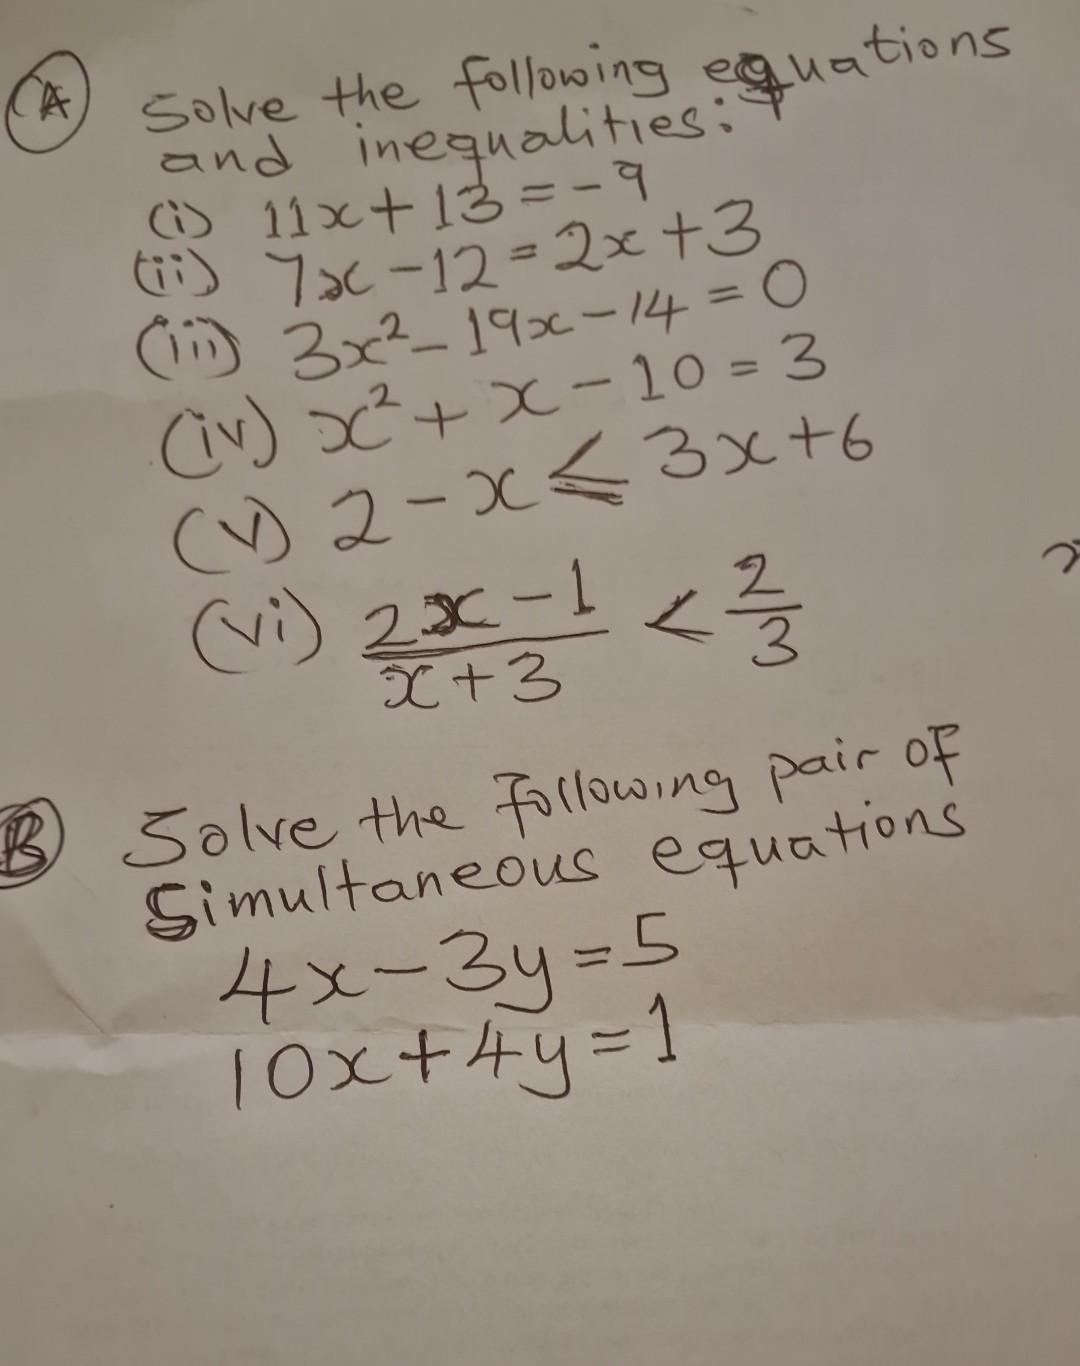 (A) Solve the following equations
and inequalities:
(i) 11x + 13 = -9
(ii) 7x - 12 = 2x + 3
(iii) 3x² - 19x - 14 = 0
(iv) x² + x - 10 = 3
(v) 2 - x ≤ 3x + 6
(vi) (2x - 1)/(x + 3) < 2/3
(B) Solve the following pair of
Simultaneous equations
4x - 3y = 5
10x + 4y = 1